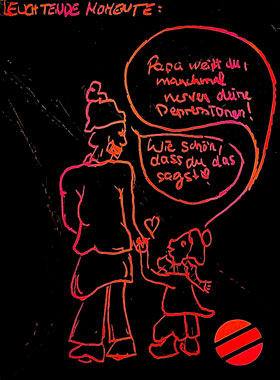 LEUCHTENDE MOMENTE:
Papa weißt du,
manchmal
nerven deine
Depressionen!
Wie schön,
dass du das
sagst